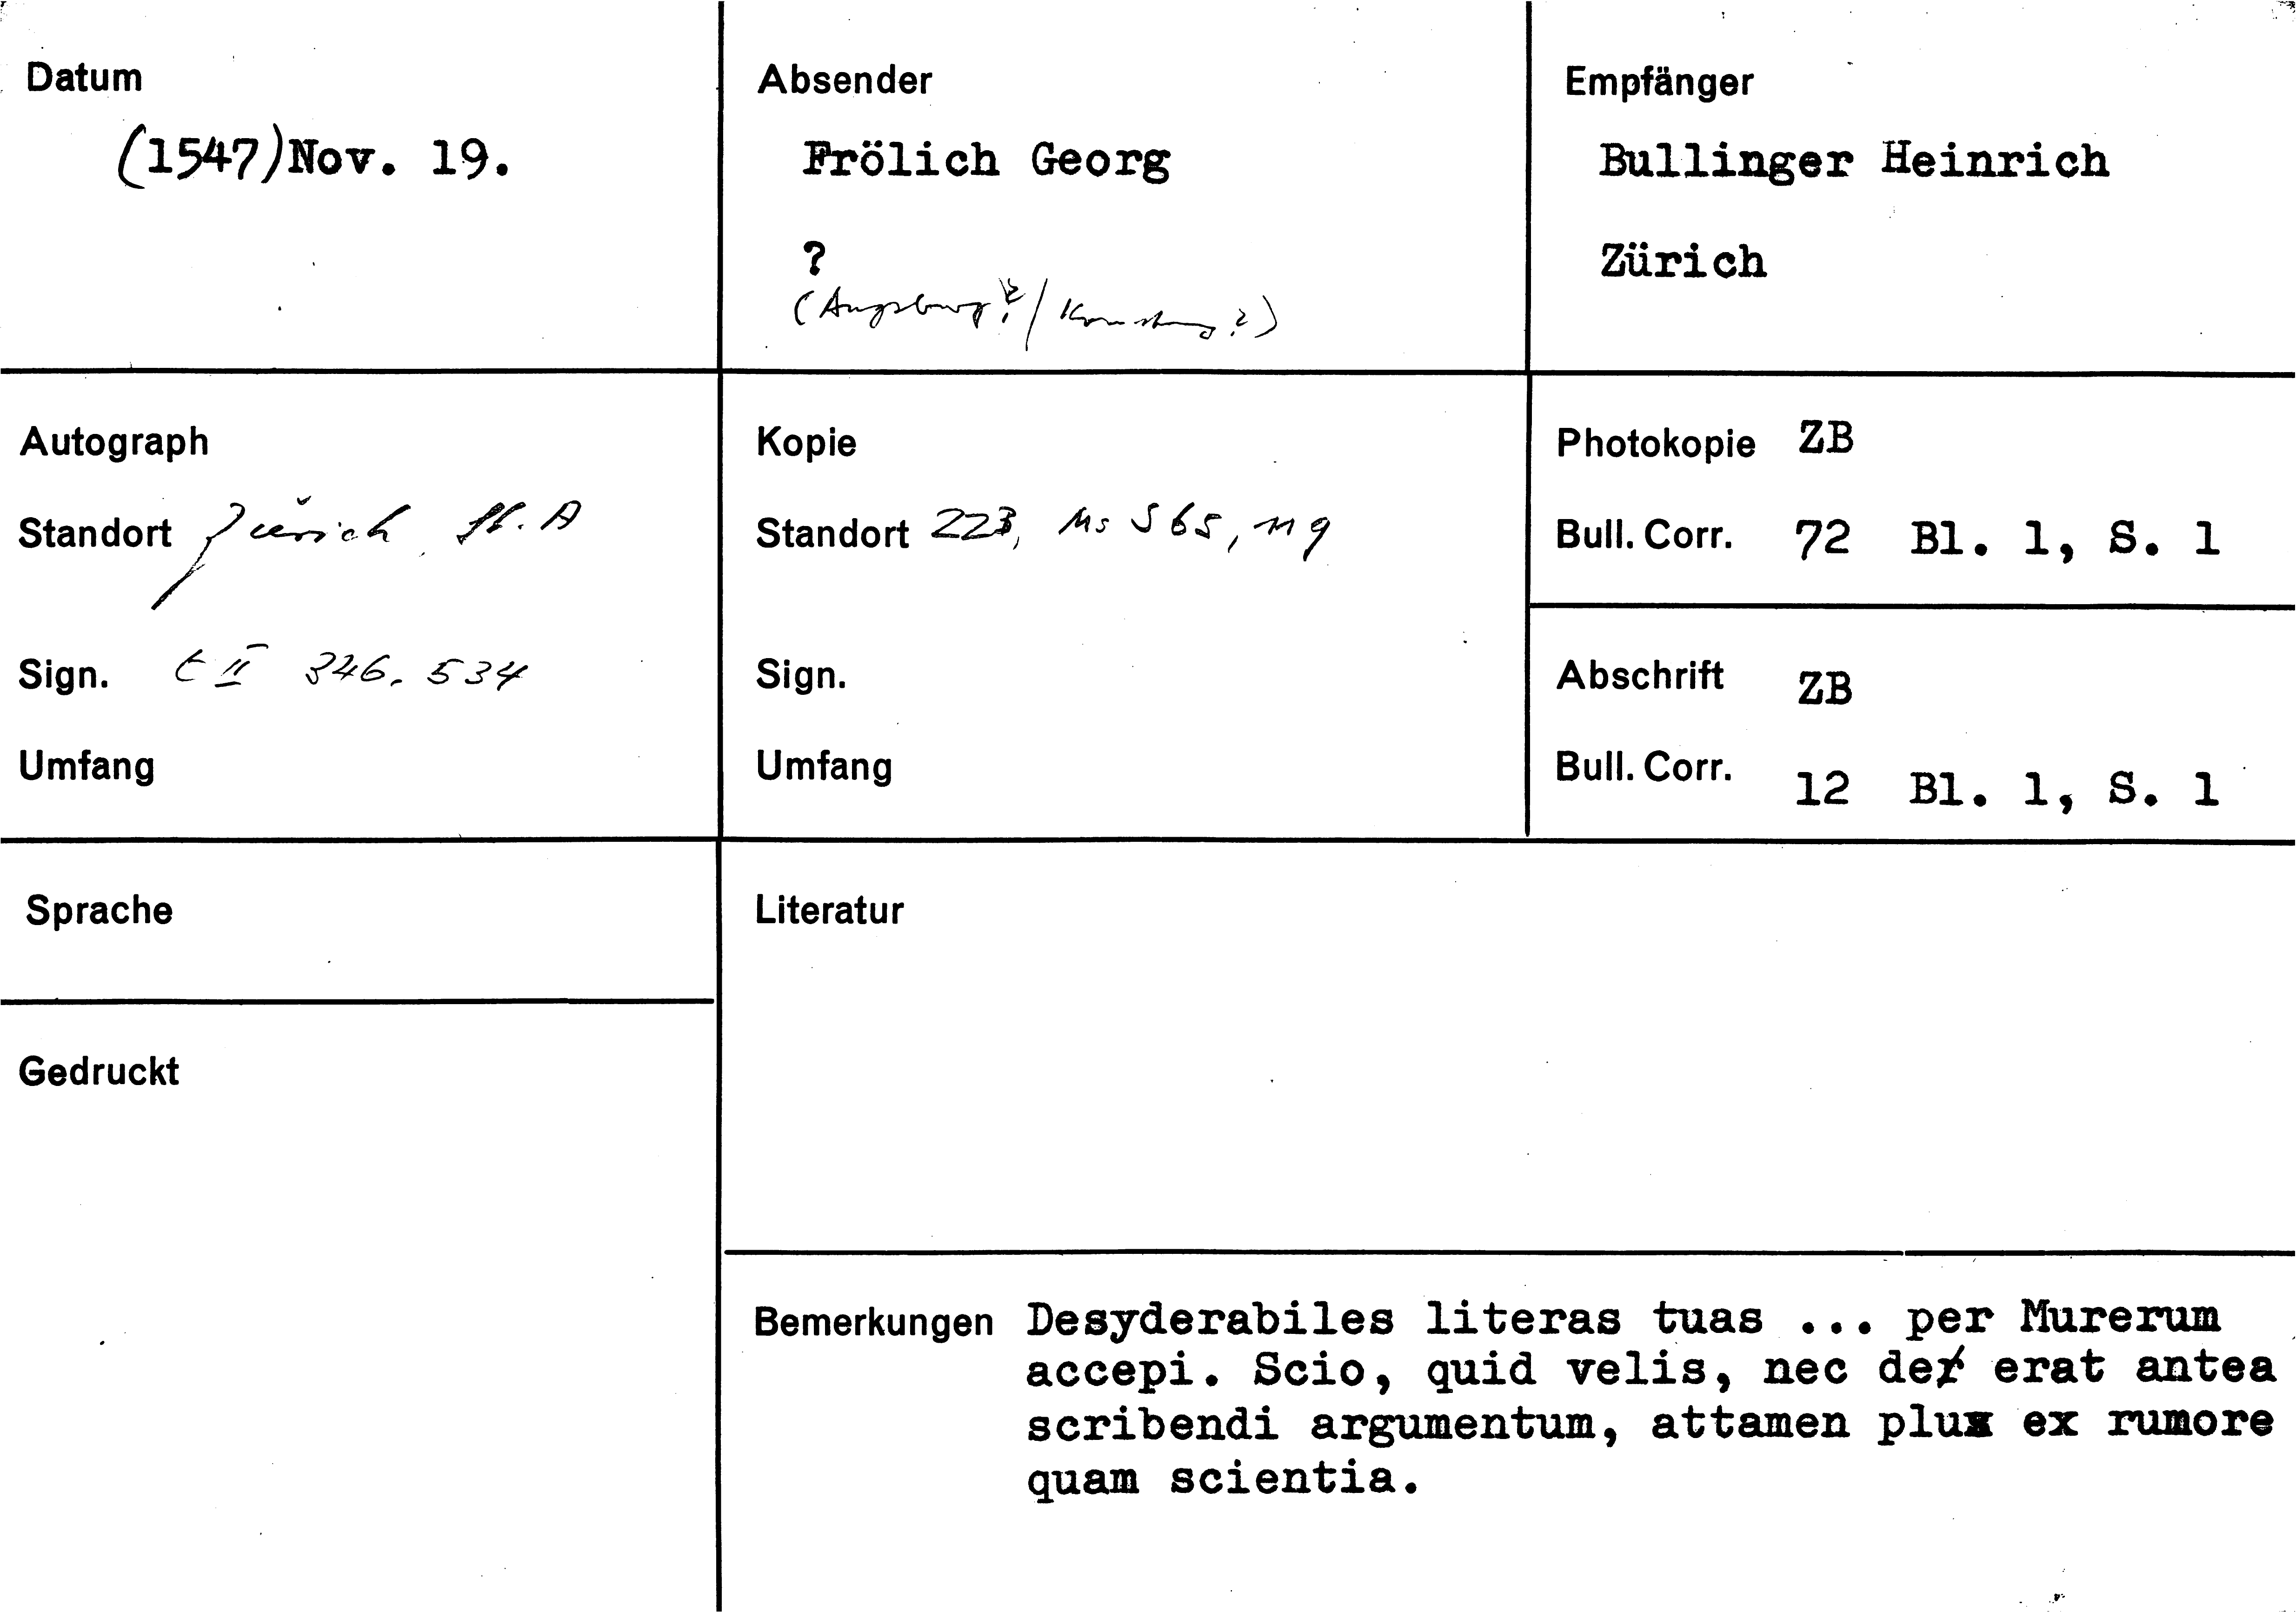 Datum
(1547) Nov. 19.
Absender
Frölich Georg
?
(Augsburg? / Konstanz?)
Empfänger
Bullinger Heinrich
Zürich
Autograph
Standort Zürich, St. A
Sign. E II 346. 534
Umfang
Kopie
Standort 223, Ms S 65, 119
Sign.
Umfang
Photokopie ZB
Bull. Corr. 72 Bl. 1, S. 1
Abschrift ZB
Bull. Corr. 12 Bl. 1, S. 1
Sprache
Gedruckt
Literatur
Bemerkungen Desyderabiles literas tuas ... per Murerum
accepi. Scio, quid velis, nec de erat antea
scribendi argumentum, attamen plus ex rumore
quam scientia.